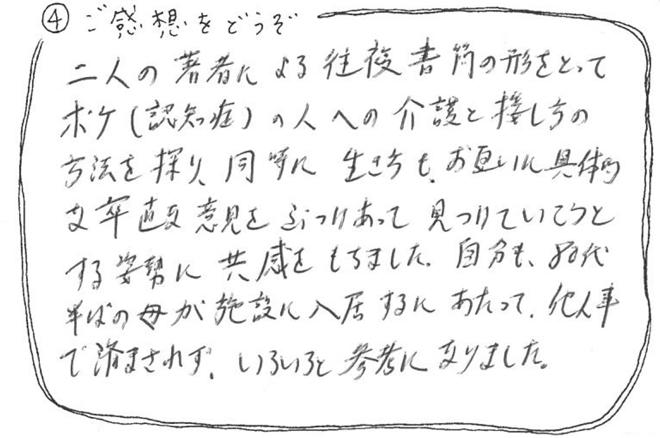 ④ ご感想をどうぞ
二人の著者による往復書簡の形をとって
ボケ(認知症)の人への介護と接し方の
方法を探り、同時に生き方も、お互いに具体的
な率直な意見をぶつけあって見つけていこうと
する姿勢に共感をもちました。自分も、80代
半ばの母が施設に入居するにあたって、他人事
で済まされず、いろいろと参考になりました。